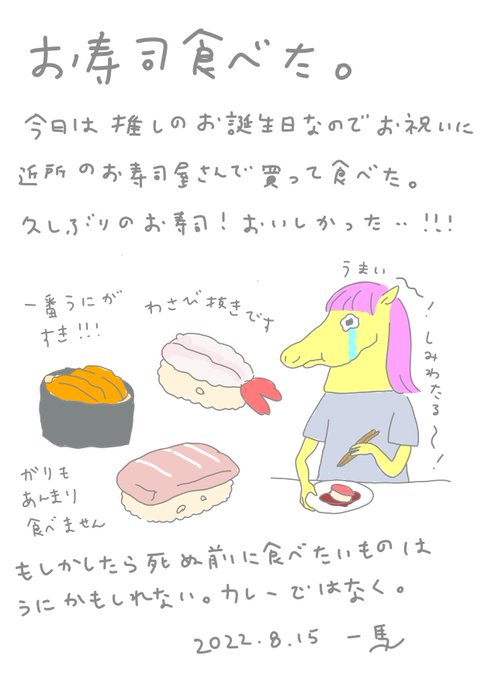 お寿司食べた。
今日は推しのお誕生日なのでお祝いに
近所のお寿司屋さんで買って食べた。
久しぶりのお寿司！おいしかった‥!!!
一番うにが
すき!!!
わさび抜きです
うまい〜！
しみわたる〜！
がりも
あんまり
食べません
もしかしたら死ぬ前に食べたいものは
うにかもしれない。カレーではなく。
2022.8.15 一馬